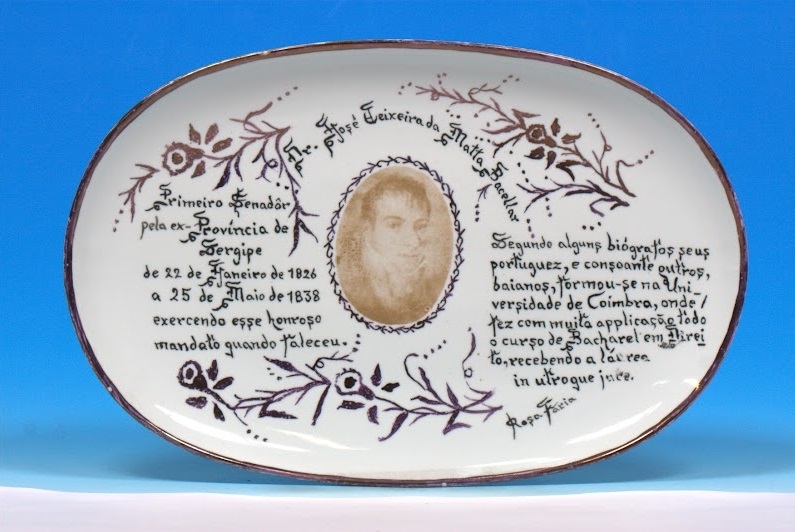 Dr. José Teixeira da Matta Bacellar
Primeiro Senadôr
pela ex-Província de
Sergipe
de 22 de Janeiro de 1826
a 25 de Maio de 1838
exercendo esse honroso
mandato quando faleceu.
Segundo alguns biógrafos seus
portuguez, e consoante outros,
baianos, formou-se na Uni-
versidade de Coimbra, onde
fez com muita applicação todo
o curso de Bacharel em Direi
to, recebendo a láurea
in utroque jure.
Rosa Faria